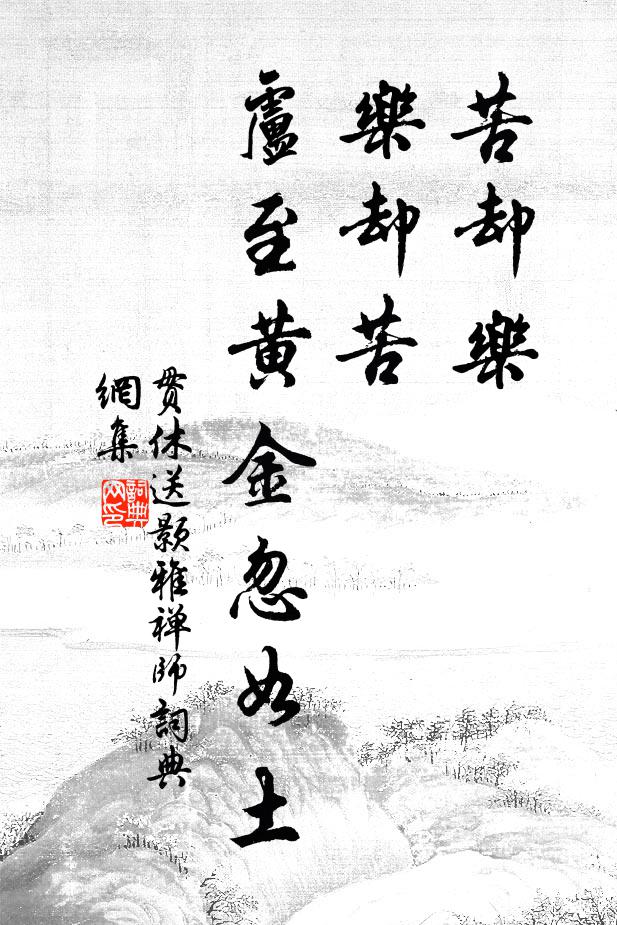 苦却樂
樂却苦
盧至黃金忽如土
貫休送顥雅禅師詞典
網集
詞典
网印